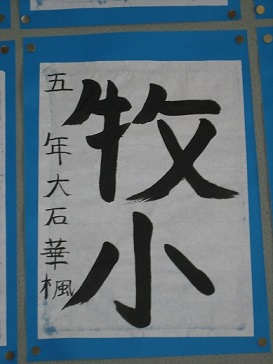 牧小
五年大石華楓